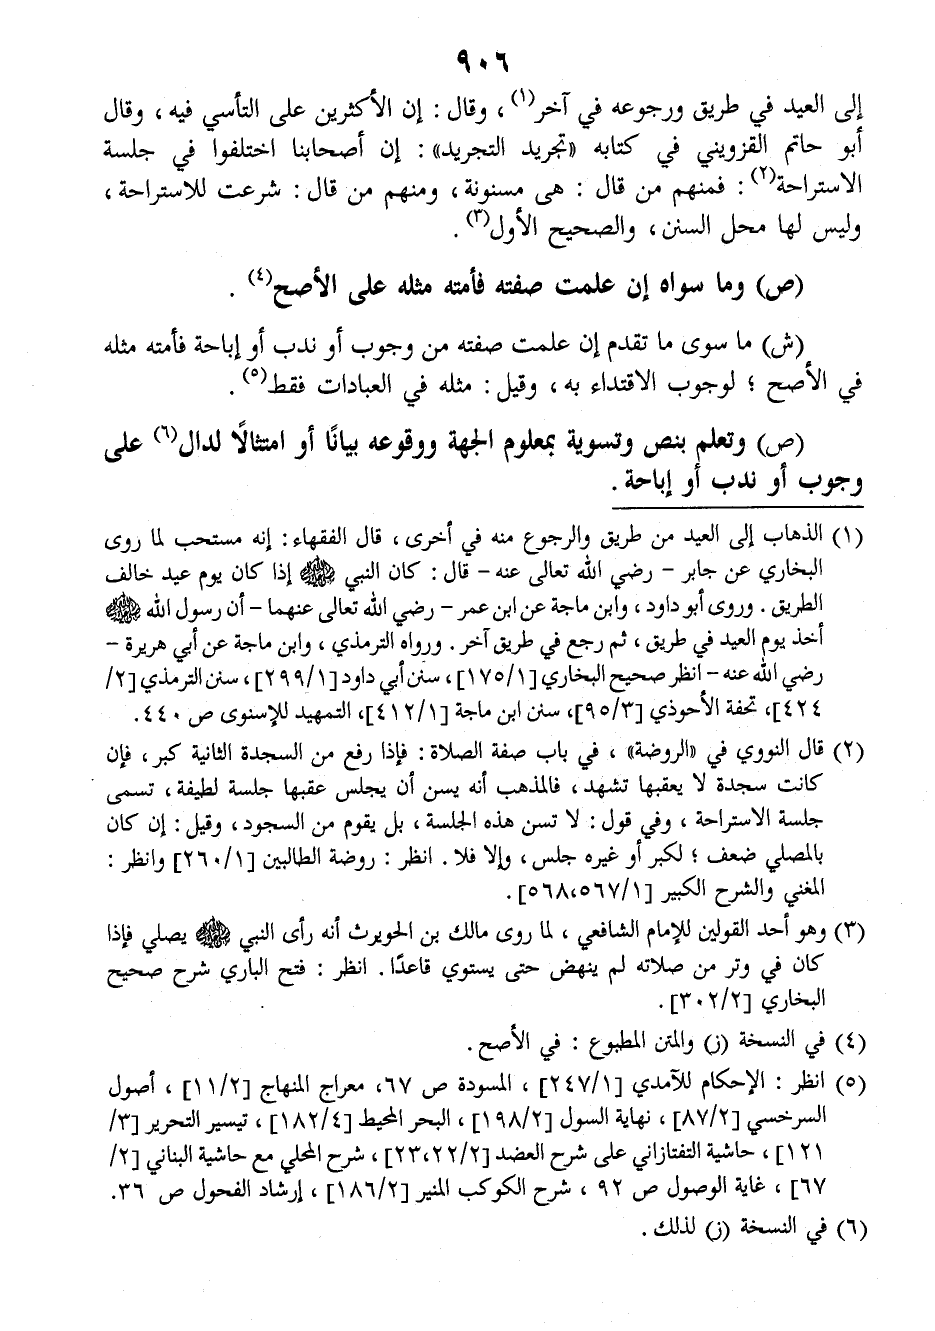 ٩٠٦
إلى العيد في طريق ورجوعه في آخر(١)، وقال: إن الأكثرين على التأسي فيه، وقال
أبو حاتم القزويني في كتابه «تجريد التجريد»: إن أصحابنا اختلفوا في جلسة
الاستراحة(٢): فمنهم من قال: هى مسنونة، ومنهم من قال: شرعت للاستراحة،
وليس لها محل السنن، والصحيح الأول(٣).
(ص) وما سواه إن علمت صفته فأمته مثله على الأصح(٤).
(ش) ما سوى ما تقدم إن علمت صفته من وجوب أو ندب أو إباحة فأمته مثله
في الأصح؛ لوجوب الاقتداء به، وقيل: مثله في العبادات فقط(٥).
(ص) وتعلم بنص وتسوية بمعلوم الجهة ووقوعه بيانًا أو امتثالًا لدال(٦) على
وجوب أو ندب أو إباحة.
(١) الذهاب إلى العيد من طريق والرجوع منه في أخرى، قال الفقهاء: إنه مستحب لما روى
البخاري عن جابر - رضي الله تعالى عنه - قال: كان النبي ﷺ إذا كان يوم عيد خالف
الطريق. وروى أبو داود، وابن ماجة عن ابن عمر - رضي الله تعالى عنهما - أن رسول الله ﷺ
أخذ يوم العيد في طريق، ثم رجع في طريق آخر. ورواه الترمذي، وابن ماجة عن أبي هريرة -
رضي الله عنه - انظر صحيح البخاري [١/١٧٥]، سنن أبي داود [١/٢٩٩]، سنن الترمذي [٢/
٤٢٤]، تحفة الأحوذي [٣/٩٥]، سنن ابن ماجة [١/٤١٢]، التمهيد للإسنوى ص ٤٤٠.
(٢) قال النووي في «الروضة»، في باب صفة الصلاة: فإذا رفع من السجدة الثانية كبر، فإن
كانت سجدة لا يعقبها تشهد، فالمذهب أنه يسن أن يجلس عقبها جلسة لطيفة، تسمى
جلسة الاستراحة، وفي قول: لا تسن هذه الجلسة، بل يقوم من السجود، وقيل: إن كان
بالمصلي ضعف؛ لكبر أو غيره جلس، وإلا فلا. انظر: روضة الطالبين [١/٢٦٠] وانظر:
المغني والشرح الكبير [١/٥٦٧،٥٦٨].
(٣) وهو أحد القولين للإمام الشافعي، لما روى مالك بن الحويرث أنه رأى النبي ﷺ يصلي فإذا
كان في وتر من صلاته لم ينهض حتى يستوي قاعدًا. انظر: فتح الباري شرح صحيح
البخاري [٢/٣٠٢].
(٤) في النسخة (ز) والمتن المطبوع: في الأصح.
(٥) انظر: الإحكام للآمدي [١/٢٤٧]، المسودة ص ٦٧، معراج المنهاج [٢/١١]، أصول
السرخسي [٢/٨٧]، نهاية السول [٢/١٩٨]، البحر المحيط [٤/١٨٢]، تيسير التحرير [٣/
١٢١]، حاشية التفتازاني على شرح العضد [٢/٢٢،٢٣]، شرح المحلي مع حاشية البناني [٢/
٦٧]، غاية الوصول ص ٩٢، شرح الكوكب المنير [٢/١٨٦]، إرشاد الفحول ص ٣٦.
(٦) في النسخة (ز) لذلك.